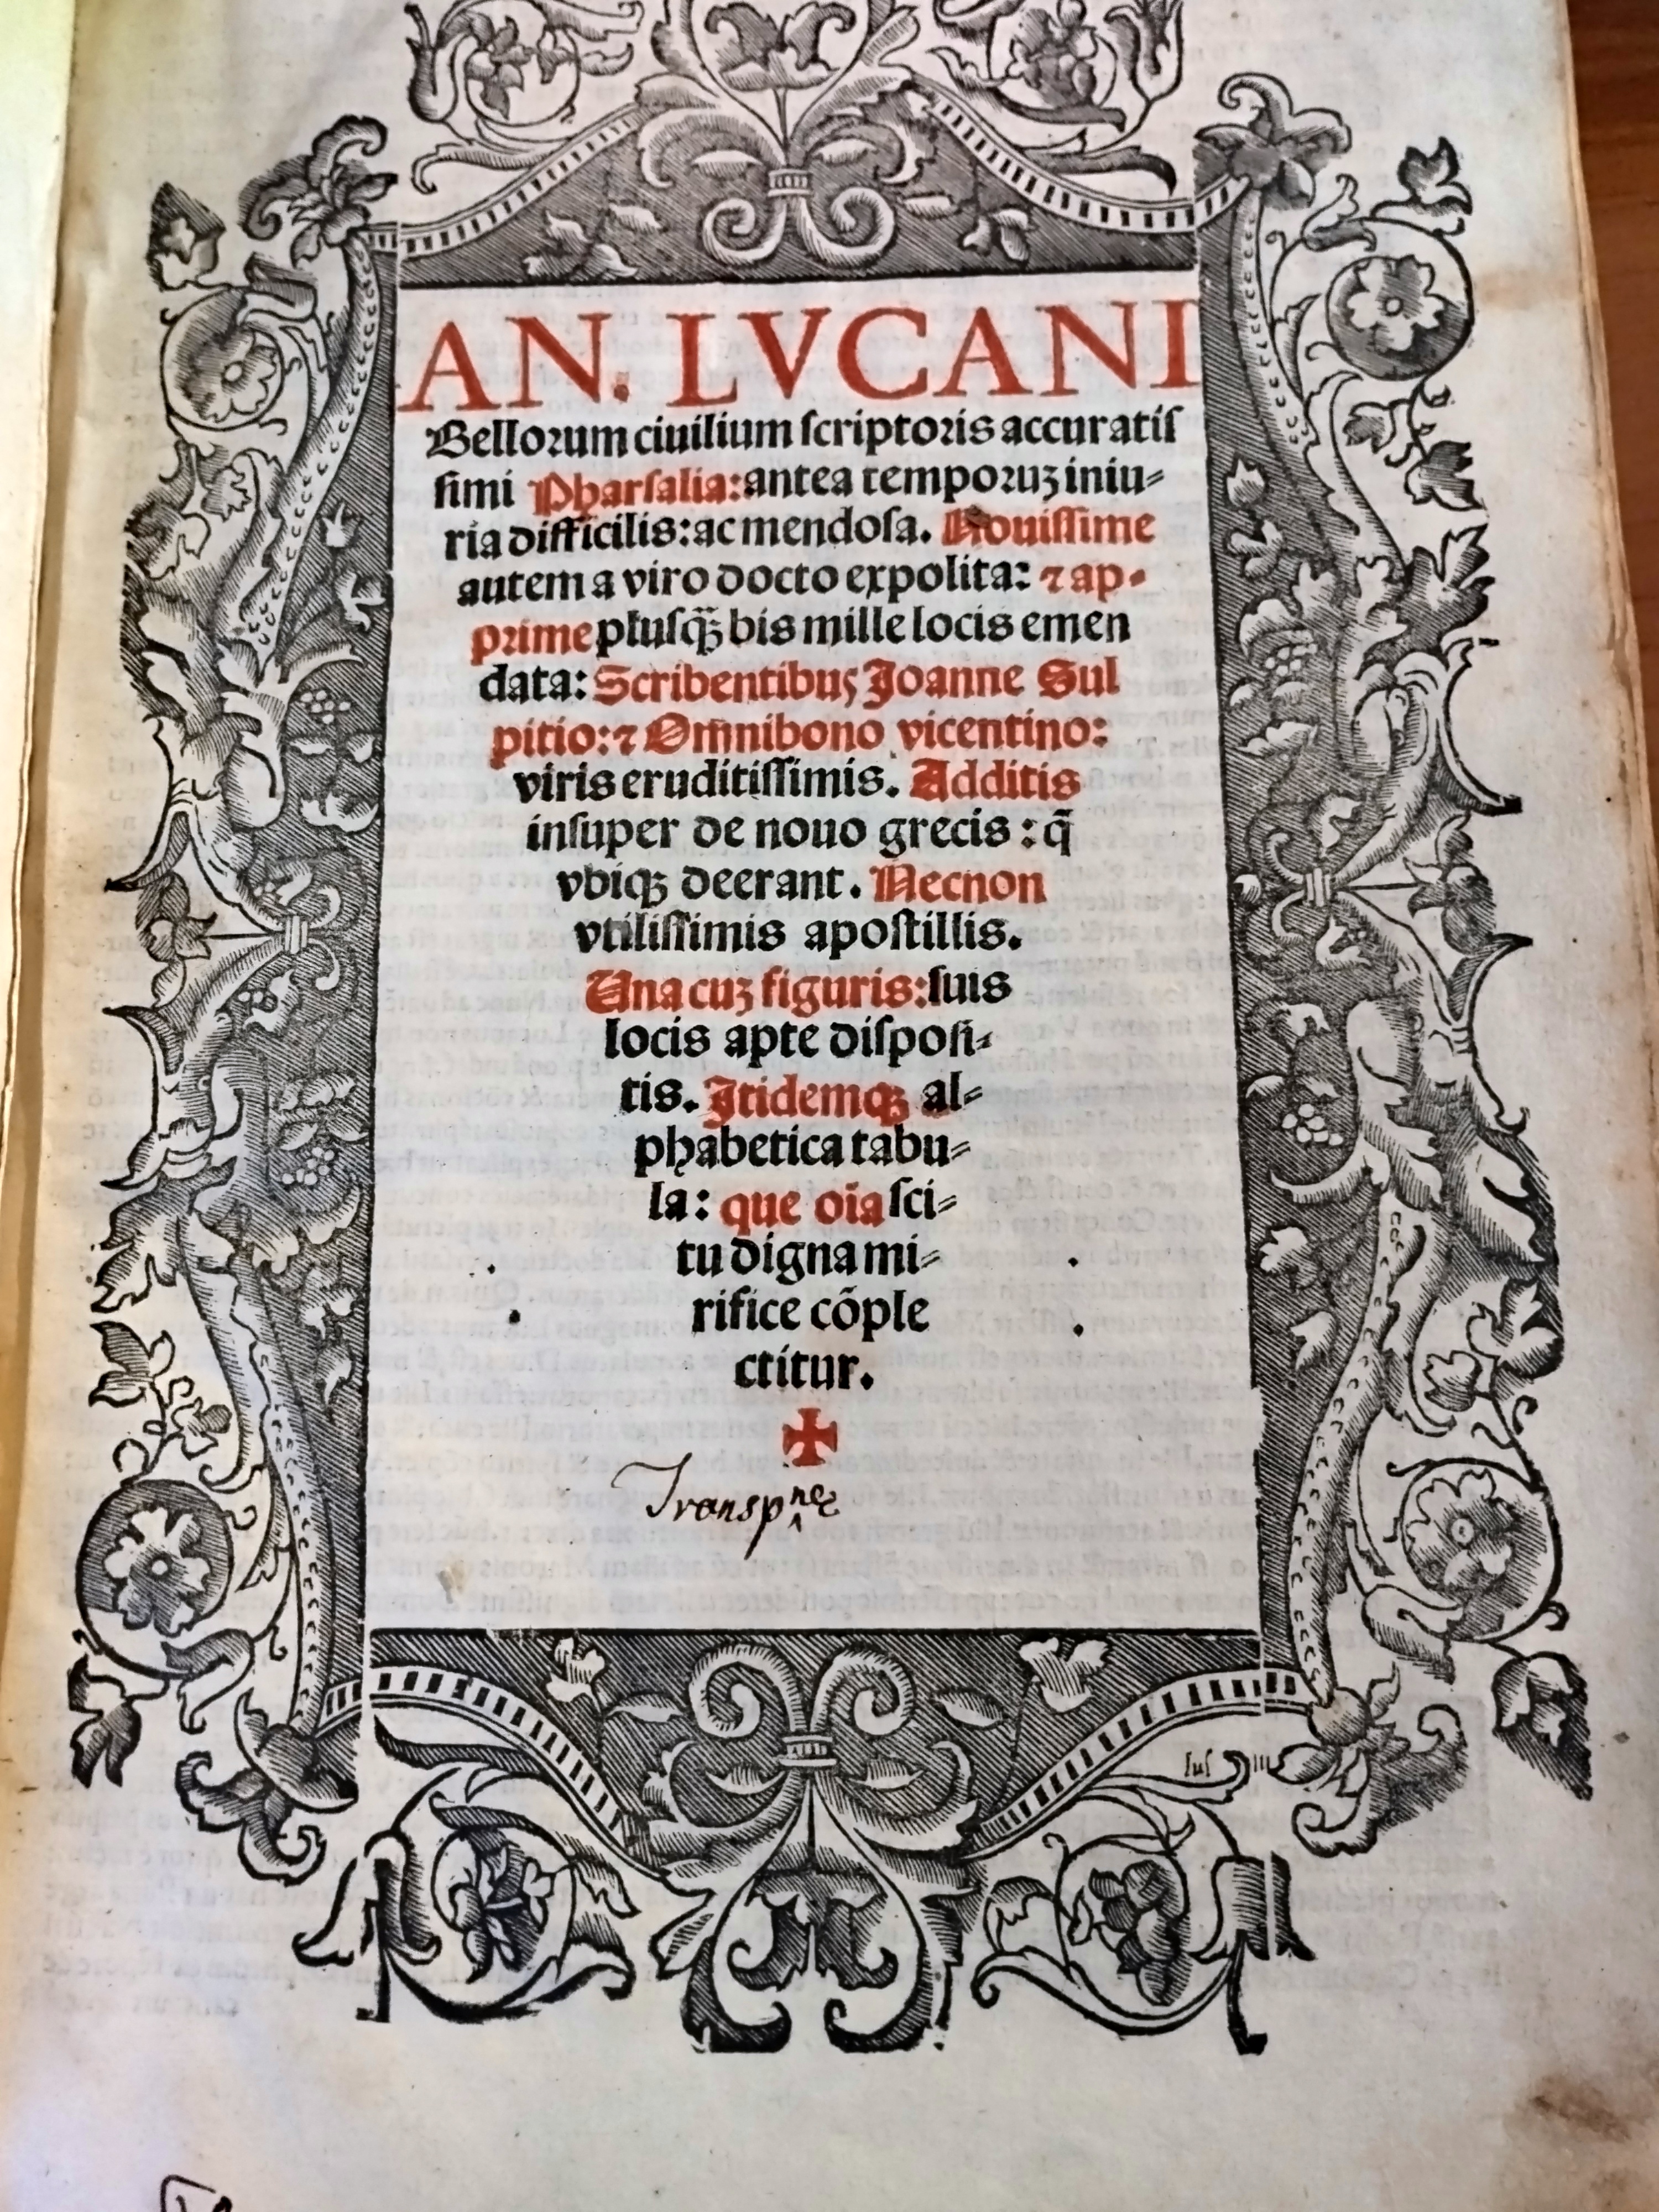 AN. LVCANI
Belloꝛum ciuilium ſcriptoꝛis accuratiſ
ſimi Pharſalia: antea tempoꝛuꝫ iniu⸗
ria difficilis: ac mendoſa. Nouiſſime
autem a viro docto expolita: ⁊ ap⸗
pꝛime pluſq̃ꝫ bis mille locis emen
data: Scribentibuꝰ Joanne Sul
pitio: ⁊ Om̃nibono vicentino:
viris eruditiſſimis. Additis
inſuper de nouo grecis: q̃
vbiqꝫ deerant. Necnon
vtiliſſimis apoſtillis.
Una cuꝫ figuris: ſuis
locis apte diſpoſi⸗
tis. Itidemqꝫ al⸗
phabetica tabu⸗
la: que oĩa ſci⸗
tu digna mi⸗
rifice cõple
ctitur.